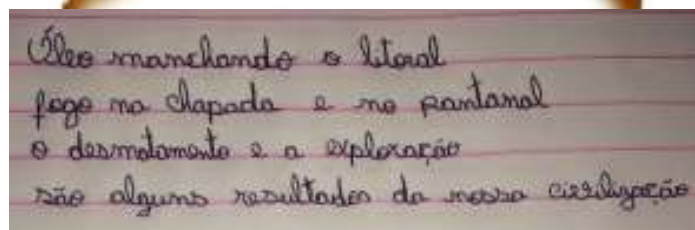 Óleo manchando o litoral
fogo na chapada e no pantanal
o desmatamento e a exploração
são alguns resultados da nossa civilização